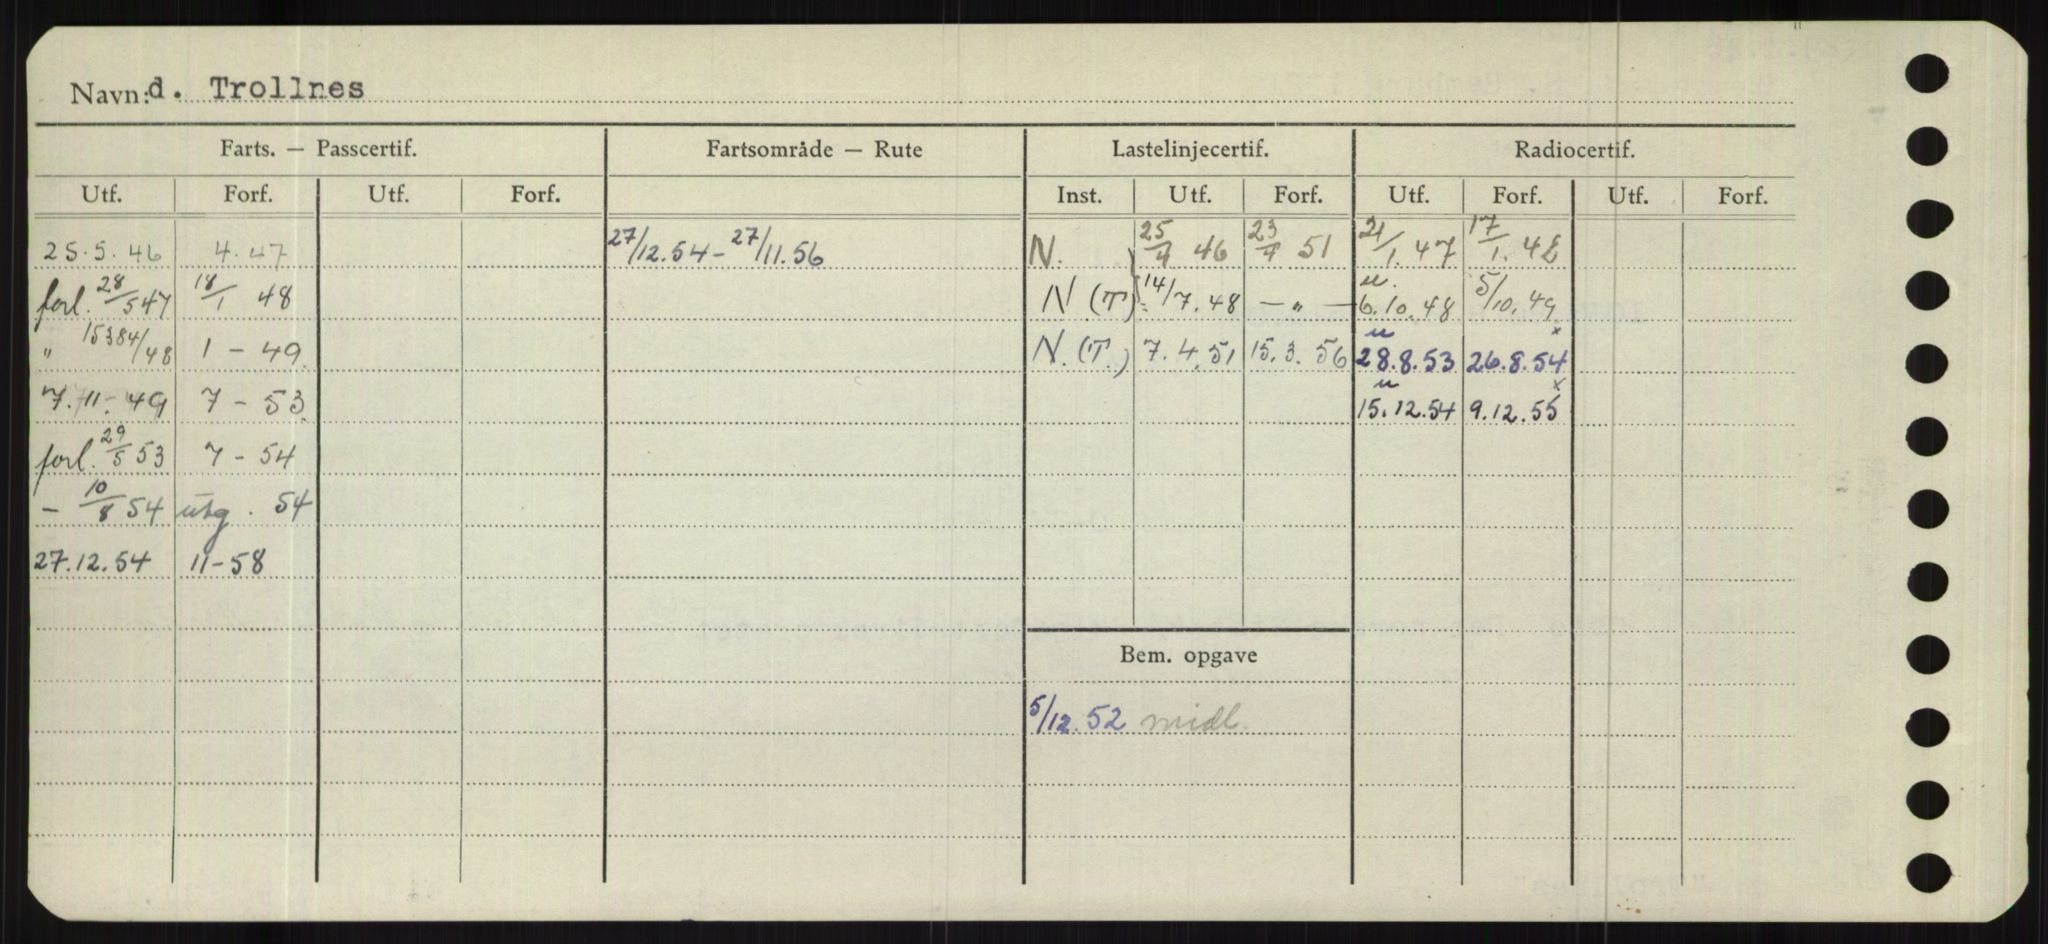 Navn: d. Trollnes
Farts. — Passcertif. Fartsområde — Rute Lastelinjecertif. Radiocertif.
Utf. Forf. Utf. Forf. Inst. Utf. Forf. Utf. Forf. Utf. Forf.
25.5.46 4.47 27/12.54 - 27/11.56 N. 25/4 46 23/4 51 21/1.47 17/1.48
forl. 28/5 47 18/1 48 N (T) 14/7.48 — „ — u. 6.10.48 5/10.49
" 15384/48 1 - 49 N. (T.) 7.4.51 15.3.56 u 28.8.53 26.8.54 x
7.11.49 7 - 53 u 15.12.54 9.12.55 x
forl. 29/5 53 7 - 54
- 10/8 54 utg. 54
27.12.54 11-58
Bem. opgave
5/12.52 midl.